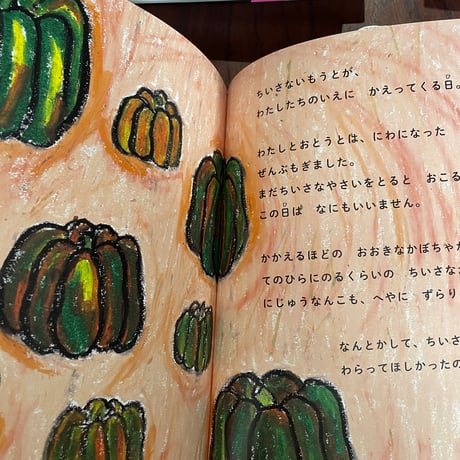 ちいさないもうとが、
わたしたちのいえに　かえってくる日。
わたしとおとうとは、にわになった
ぜんぶもぎました。
まだちいさなやさいをとると　おこる
この日は　なにもいいません。
かかえるほどの　おおきなかぼちゃ
てのひらにのるくらいの　ちいさな
にじゅうなんこも、へやに　ずらり
なんとかして、ちいさ
わらってほしかったの